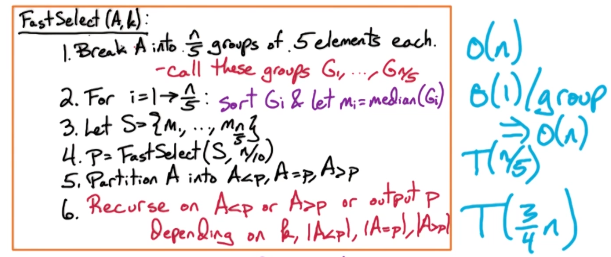 FastSelect(A,k):
1. Break A into n/5 groups of 5 elements each.
-call these groups G1, ..., Gn/5
2. For i=1→n/5: sort Gi & let mi=median(Gi)
3. Let S={m1, ..., mn/5}
4. P=FastSelect(S, n/10)
5. Partition A into A<p, A=p, A>p
6. Recurse on A<p or A>p or output p
Depending on k, |A<p|, |A=p|, |A>p|
O(n)
O(1)/group
⇒ O(n)
T(n/5)
T(3/4 n)